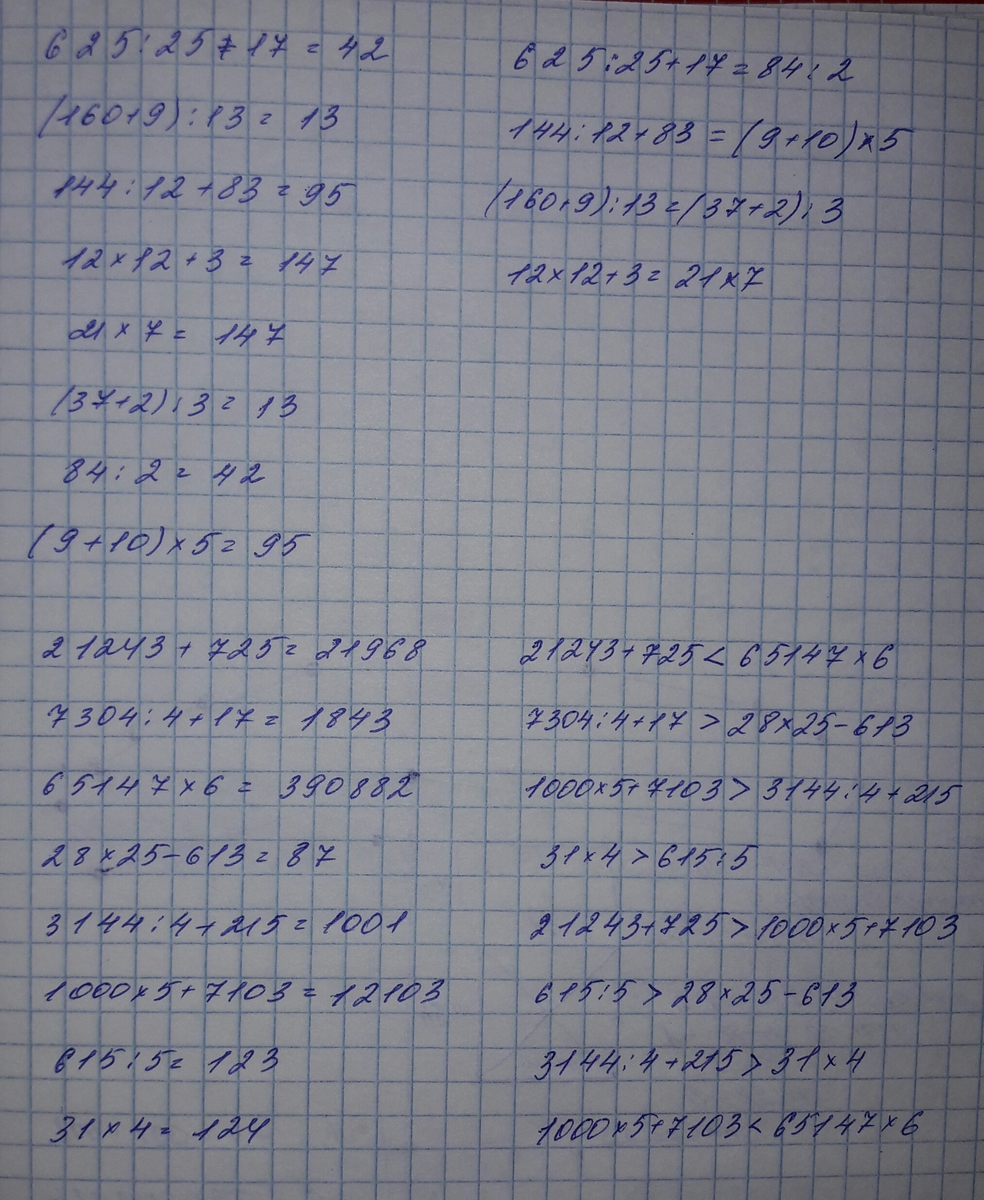 625:25+17=42
(160+9):13=13
144:12+83=95
12×12+3=147
21×7=147
(37+2):3=13
84:2=42
(9+10)×5=95
625:25+17=84:2
144:12+83=(9+10)×5
(160+9):13=(37+2):3
12×12+3=21×7
21243+725=21968
7304:4+17=1843
65147×6=390882
28×25-613=87
3144:4+215=1001
1000×5+7103=12103
615:5=123
31×4=124
21243+725<65147×6
7304:4+17>28×25-613
1000×5+7103>3144:4+215
31×4>615:5
21243+725>1000×5+7103
615:5>28×25-613
3144:4+215>31×4
1000×5+7103<65147×6